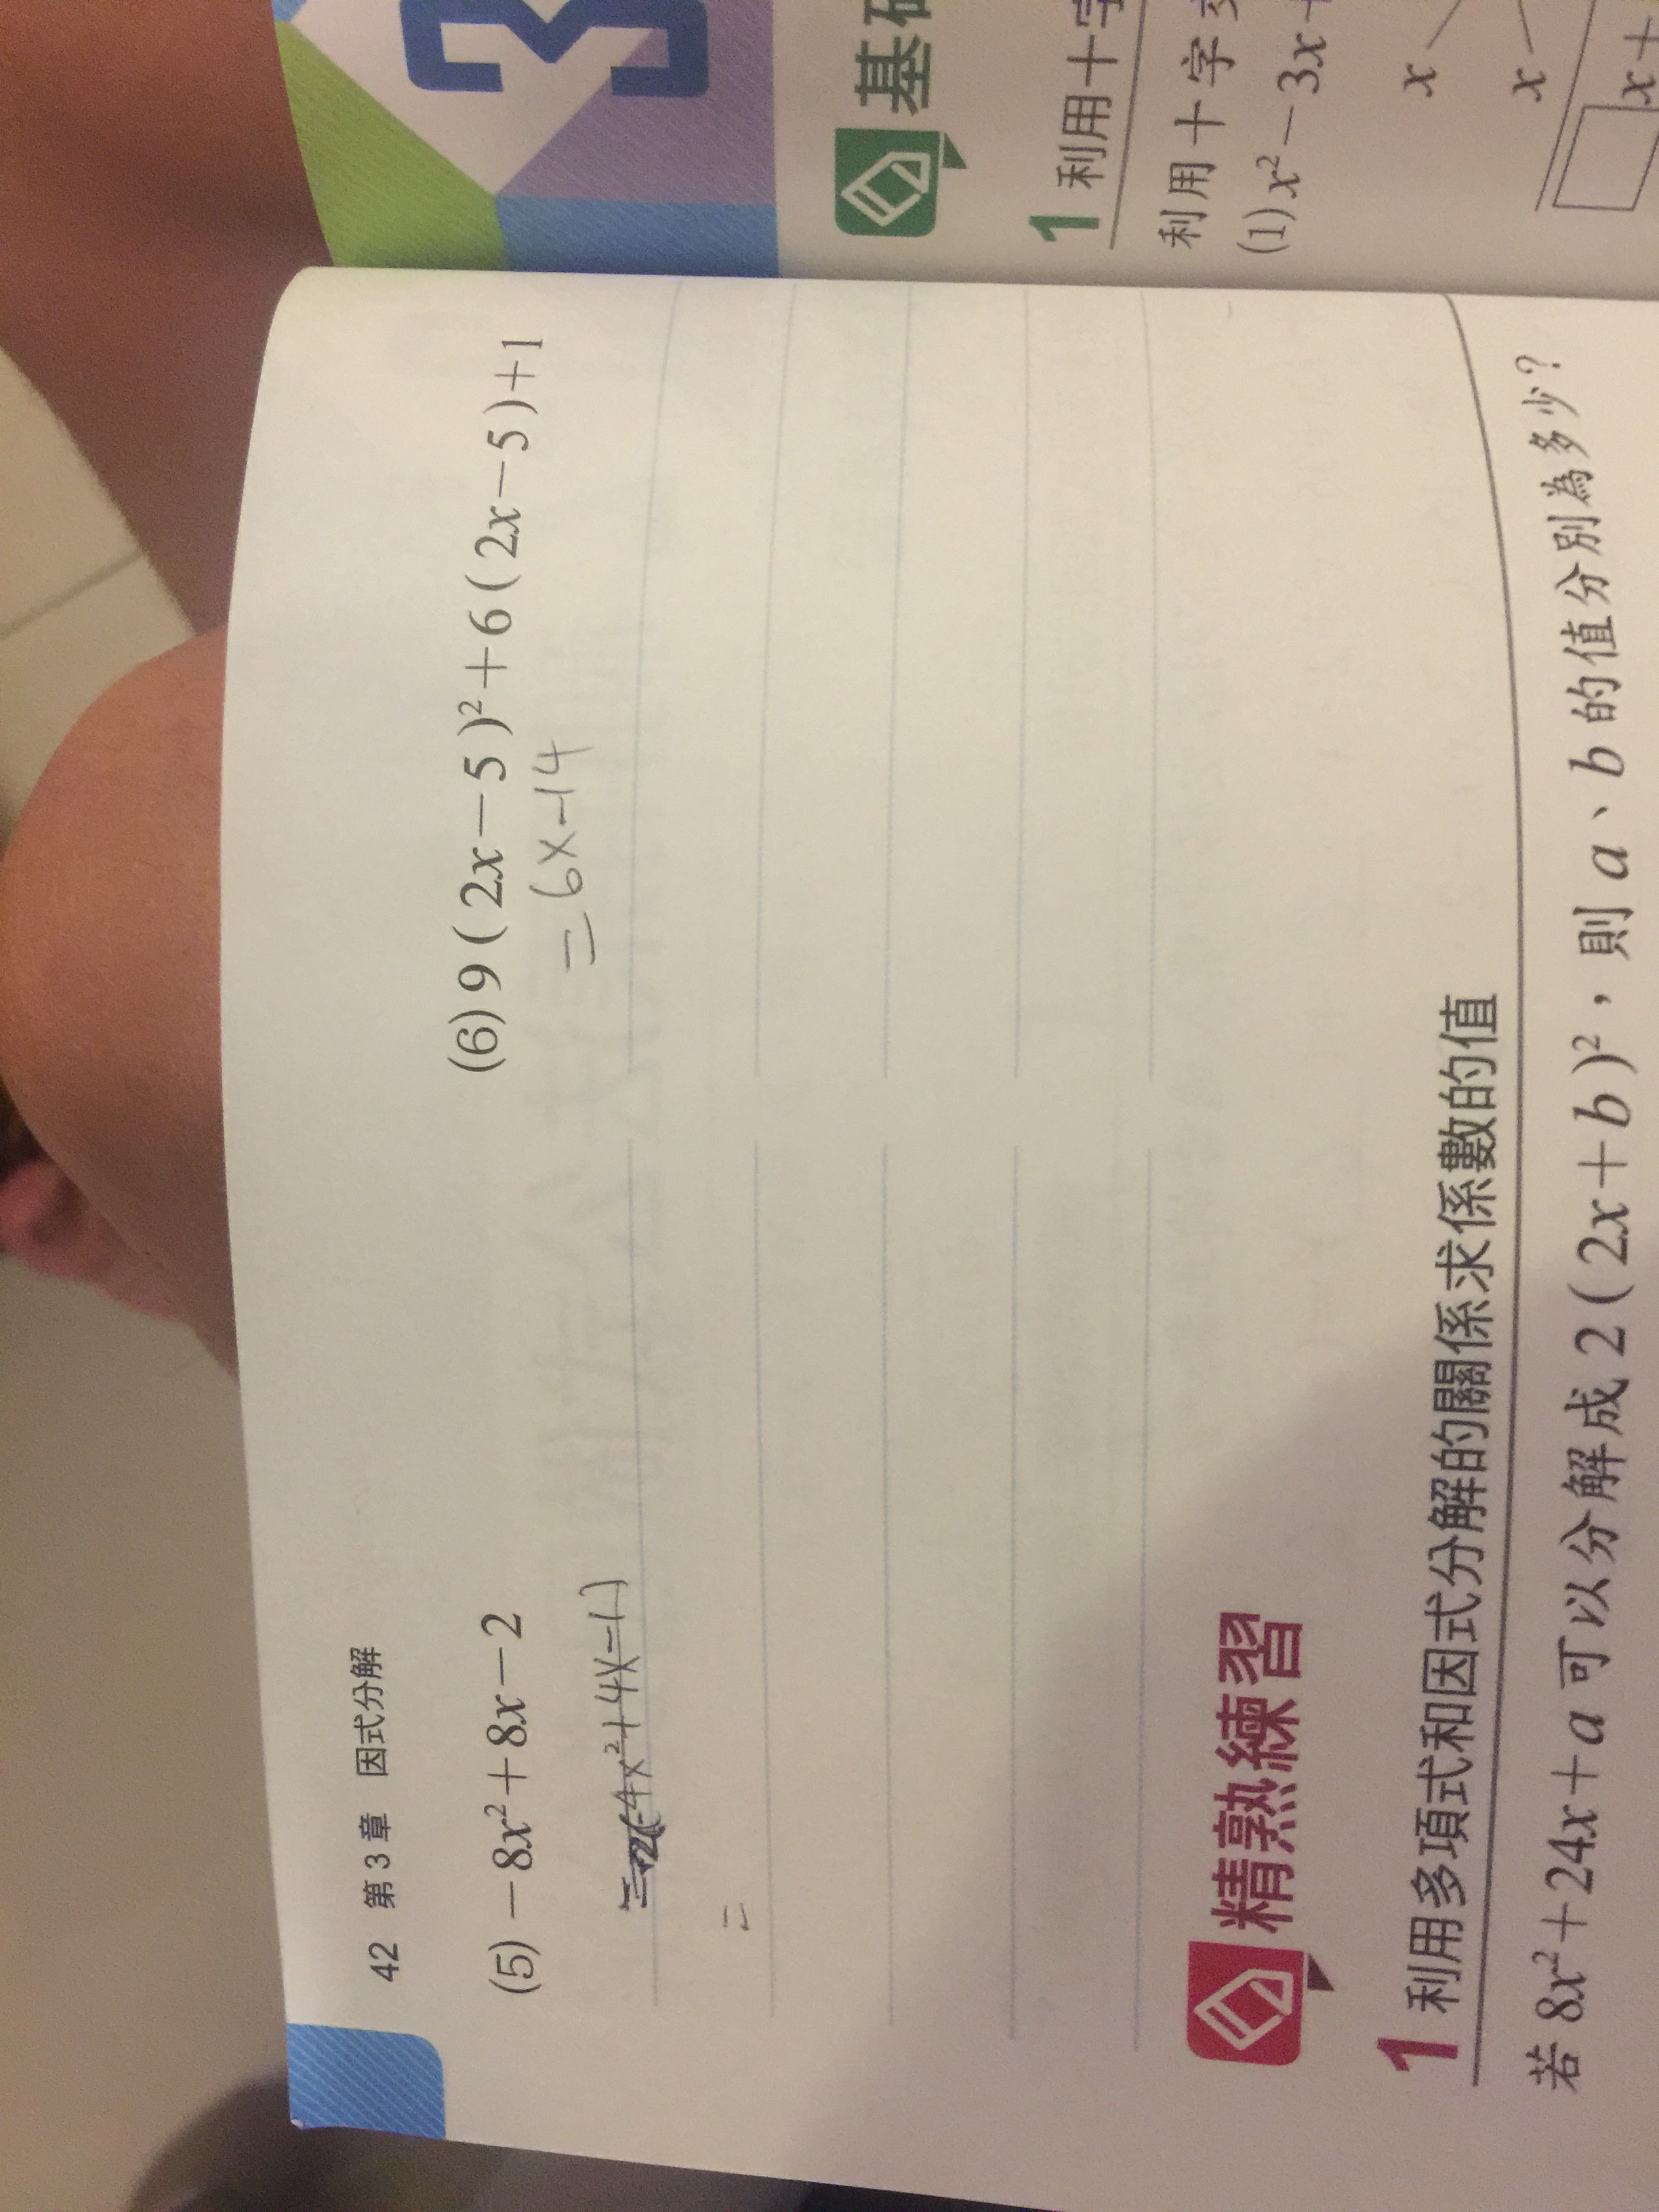 42 第3章 因式分解
(5) −8x²+8x−2
=2(-4x²+4x-1)
=
(6) 9(2x−5)²+6(2x−5)+1
=6x-14
精熟練習
1 利用多項式和因式分解的關係求係數的值
若 8x²+24x+a 可以分解成 2(2x+b)²,則 a、b 的值分別為多少?
3
基
1 利用十字
利用十字
(1) x²−3x+
x
x
x+